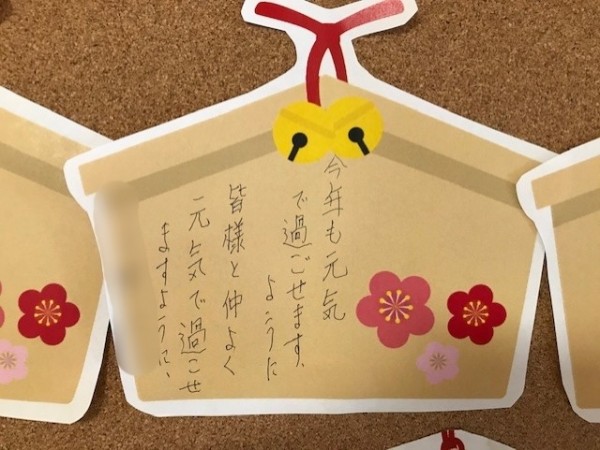 今年も元気
で過ごせます、
ように
皆様と仲よく
元気で過ごせ
ますように、